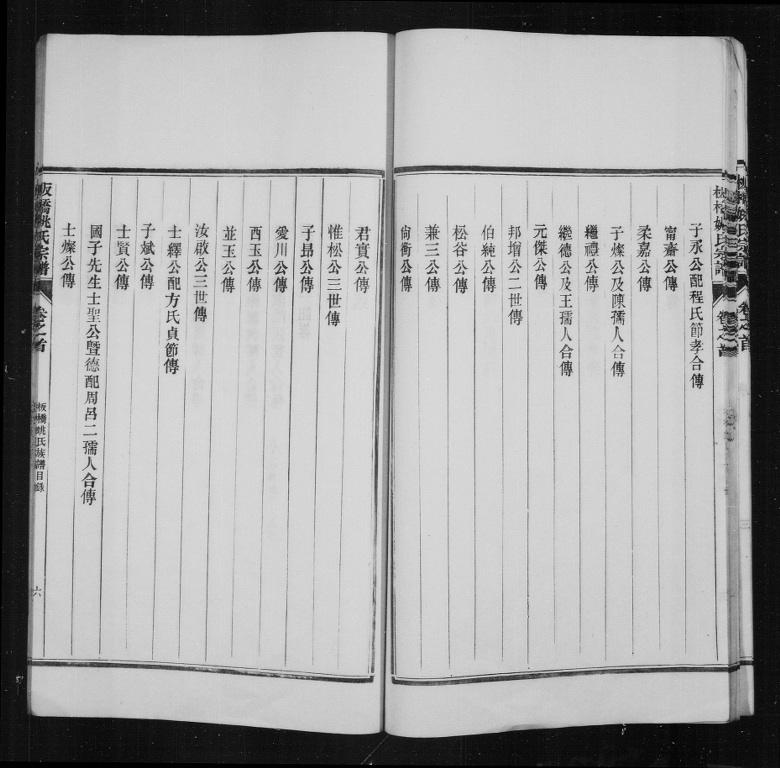 子永公配程氏節孝合傳
甯齋公傳
柔嘉公傳
子燦公及陳孺人合傳
繼禮公傳
繼德公及王孺人合傳
元傑公傳
邦增公二世傳
伯純公傳
松谷公傳
兼三公傳
尙衡公傳
君實公傳
惟松公三世傳
子昂公傳
愛川公傳
西玉公傳
並玉公傳
汝啟公三世傳
士鐸公配方氏貞節傳
子斌公傳
士賢公傳
國子先生士聖公暨德配周呂二孺人合傳
士燦公傳
板橋姚氏宗譜
卷之首
板橋姚氏族譜目錄
六